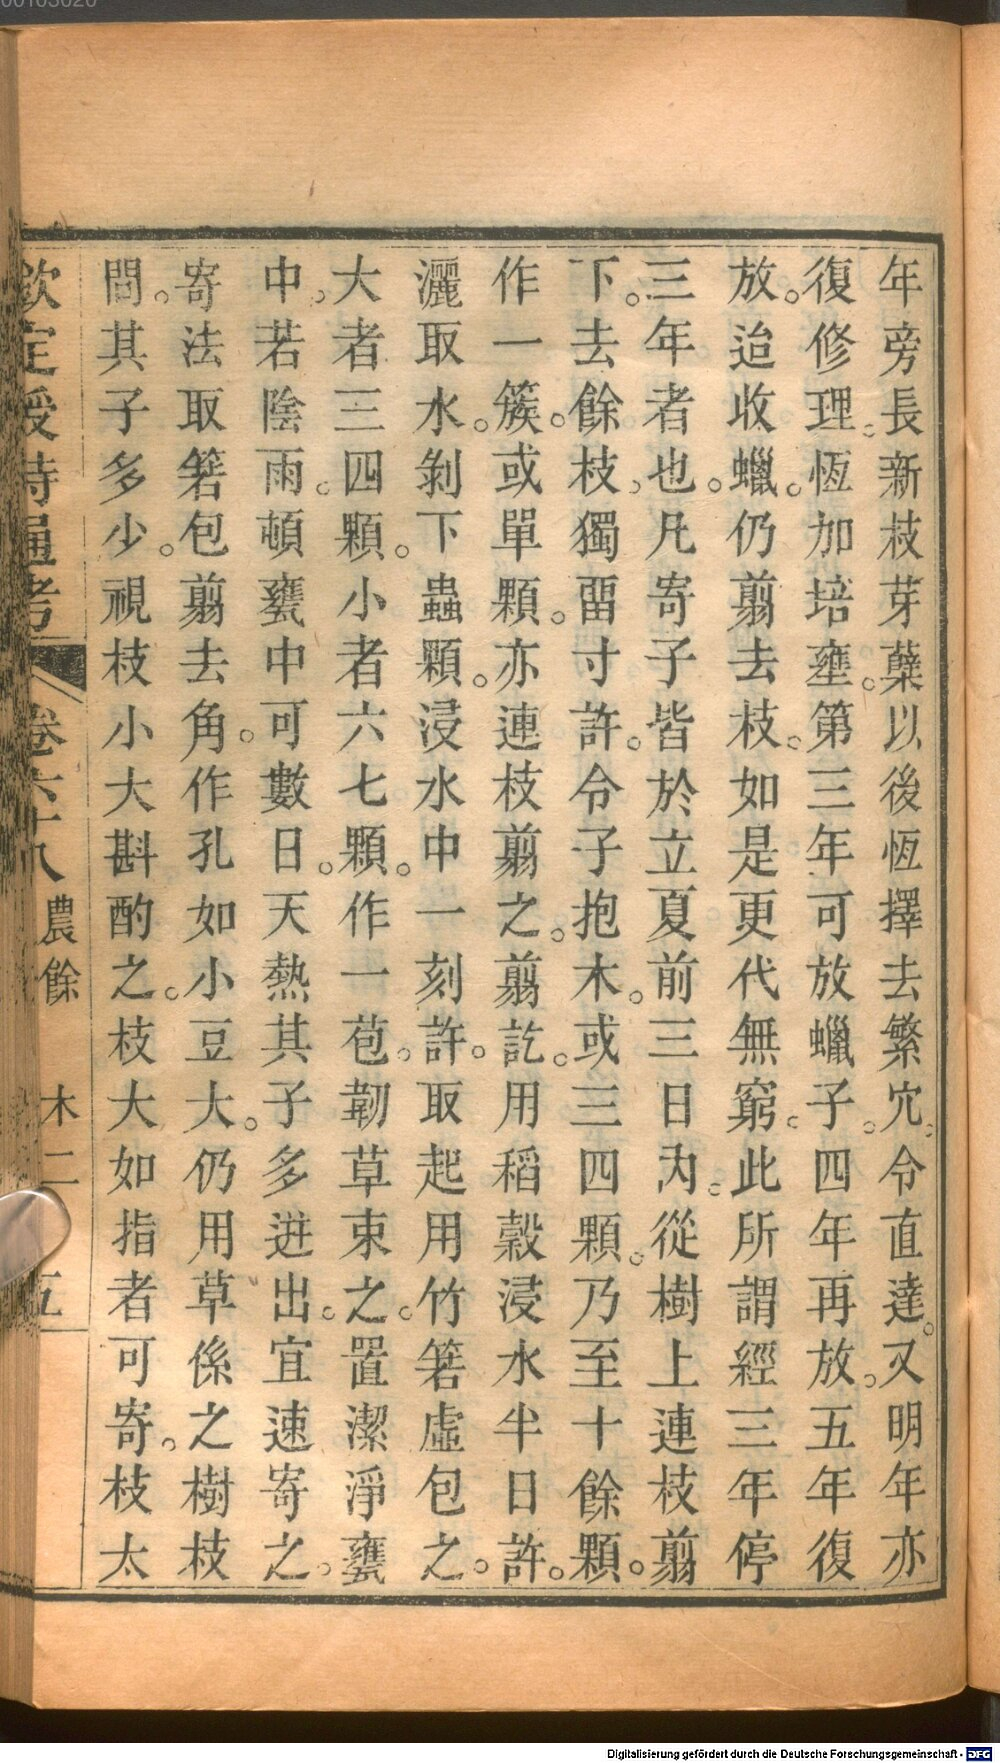 年旁長新枝芽蘖以後恆擇去繁冗。令直達。又明年亦
復修理。恆加培壅。第三年可放蠟子。四年再放。五年復
放。迨收蠟。仍翦去枝。如是更代無窮。此所謂經三年停
三年者也。凡寄子皆於立夏前三日內。從樹上連枝翦
下。去餘枝。獨留寸許。令子抱木。或三四顆。乃至十餘顆。
作一簇。或單顆。亦連枝翦之。翦訖。用稻穀浸水半日許。
灑取水。剝下蟲顆。浸水中一刻許。取起用竹箬虛包之。
大者三四顆。小者六七顆。作一苞。韌草束之。置潔淨甕
中。若陰雨。頓甕中可數日。天熱其子多迸出。宜速寄之。
寄法取箬包翦去角。作孔如小豆大。仍用草係之樹枝
間。其子多少。視枝小大斟酌之。枝大如指者可寄。枝太
欽定授時通考 卷六十八 農餘 木二 五
00103020
Digitalisierung gefördert durch die Deutsche Forschungsgemeinschaft - DFG